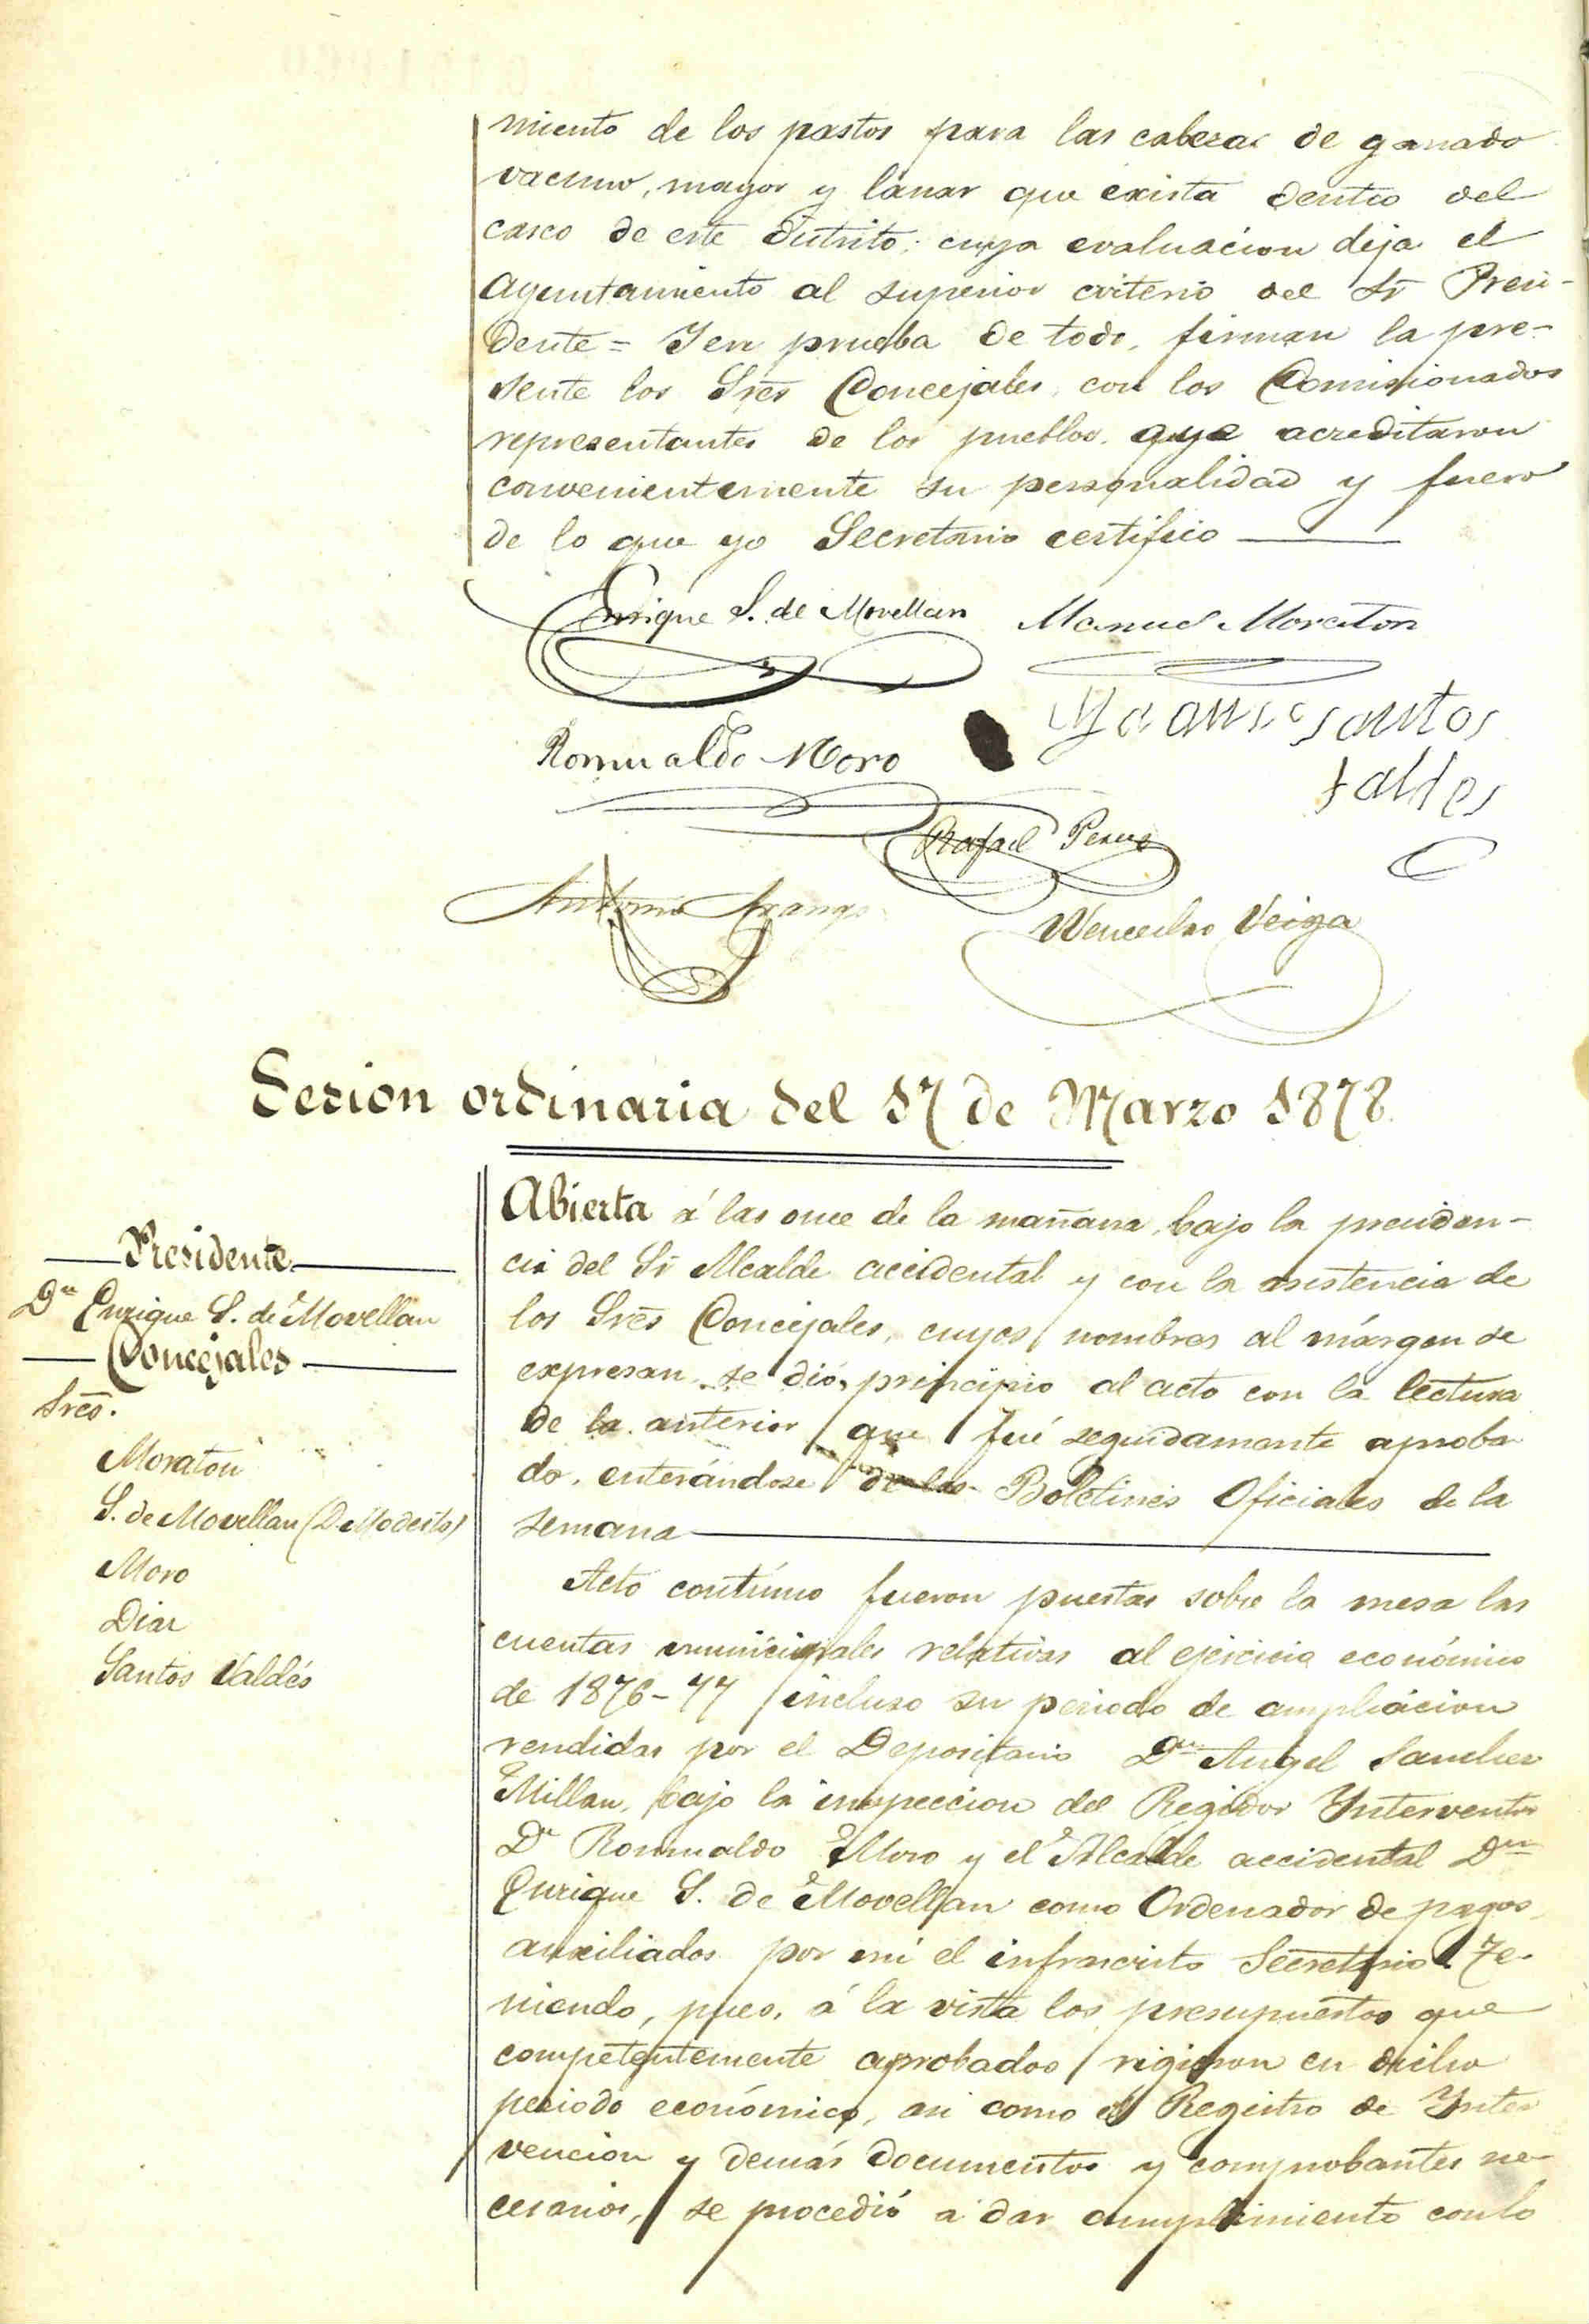 miento de los pastos para las cabezas de ganado
vacuno, mayor y lanar que exista dentro del
casco de este distrito; cuya evaluacion deja el
Ayuntamiento al superior criterio del Sr Presi-
dente = Y en prueba de todo, firman la pre-
sente los Sres Concejales, con los Comisionados
representantes de los pueblos que acreditaron
convenientemente su personalidad y fuero
de lo que yo Secretario certifico
Enrique S. de Movellan Manuel Moraton
Romualdo Moro
Santos
Valdes
Rafael
Antonio Arango
Wenceslao Veiga
Sesion ordinaria del 17 de Marzo 1878.
Presidente
Dn Enrique S. de Movellan
Concejales
Sres.
Moraton
S. de Movellan (D. Modesto)
Moro
Diaz
Santos Valdés
Abierta á las once de la mañana, bajo la presiden-
cia del Sr Alcalde accidental y con la asistencia de
los Sres Concejales, cuyos nombres al márgen se
expresan, se dió principio al acto con la lectura
de la anterior que fué seguidamente aproba
do, enterándose de los Boletines Oficiales de la
semana
Acto contínuo fueron puestas sobre la mesa las
cuentas municipales relativas al ejercicio económico
de 1876-77 incluso su periodo de ampliacion
rendidas por el Depositario Dn Angel Sanchez
Millan, bajo la inspeccion del Regidor Interventor
Dn Romualdo Moro y el Alcalde accidental Dn
Enrique S. de Movellan como Ordenador de pagos,
auxiliados por mi el infrascrito Secretario. Te-
niendo, pues, á la vista los presupuestos que
competentemente aprobados rigieron en dicho
periodo económico, asi como el Registro de Inter
vencion y demás documentos y comprobantes ne-
cesarios, se procedió á dar cumplimiento con lo